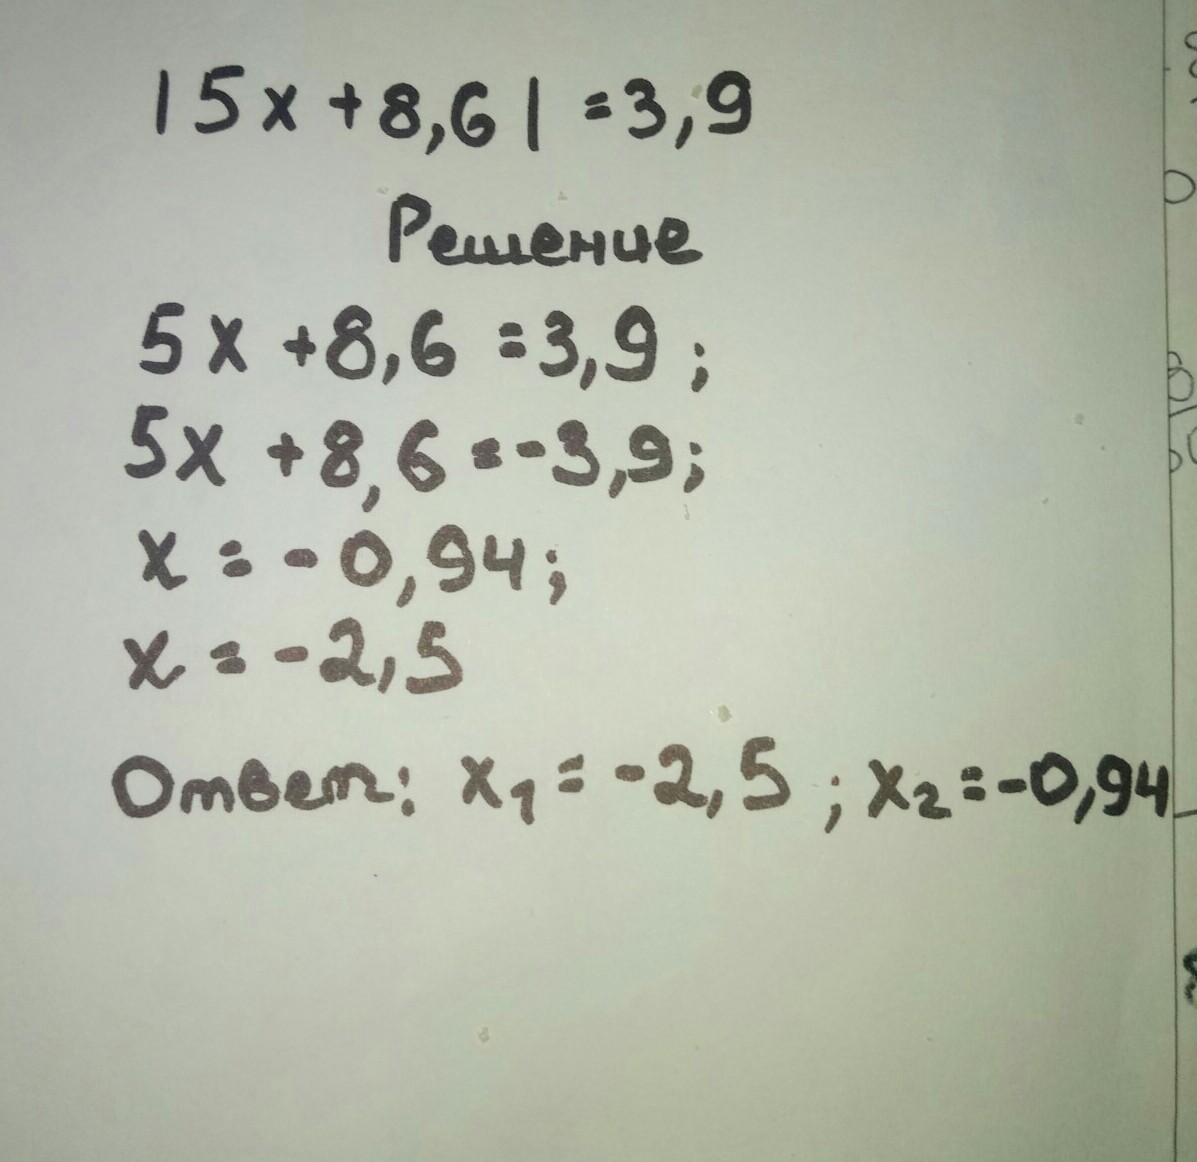 |5x+8,6|=3,9
Решение
5x+8,6=3,9;
5x+8,6=-3,9;
x=-0,94;
x=-2,5
Ответ: x₁=-2,5; x₂=-0,94